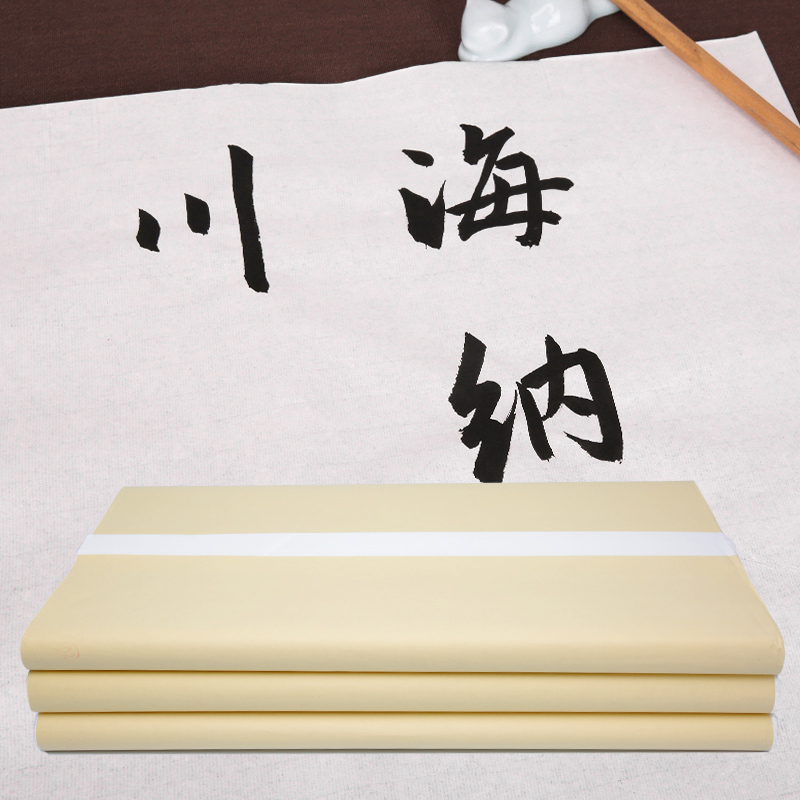 海纳
川